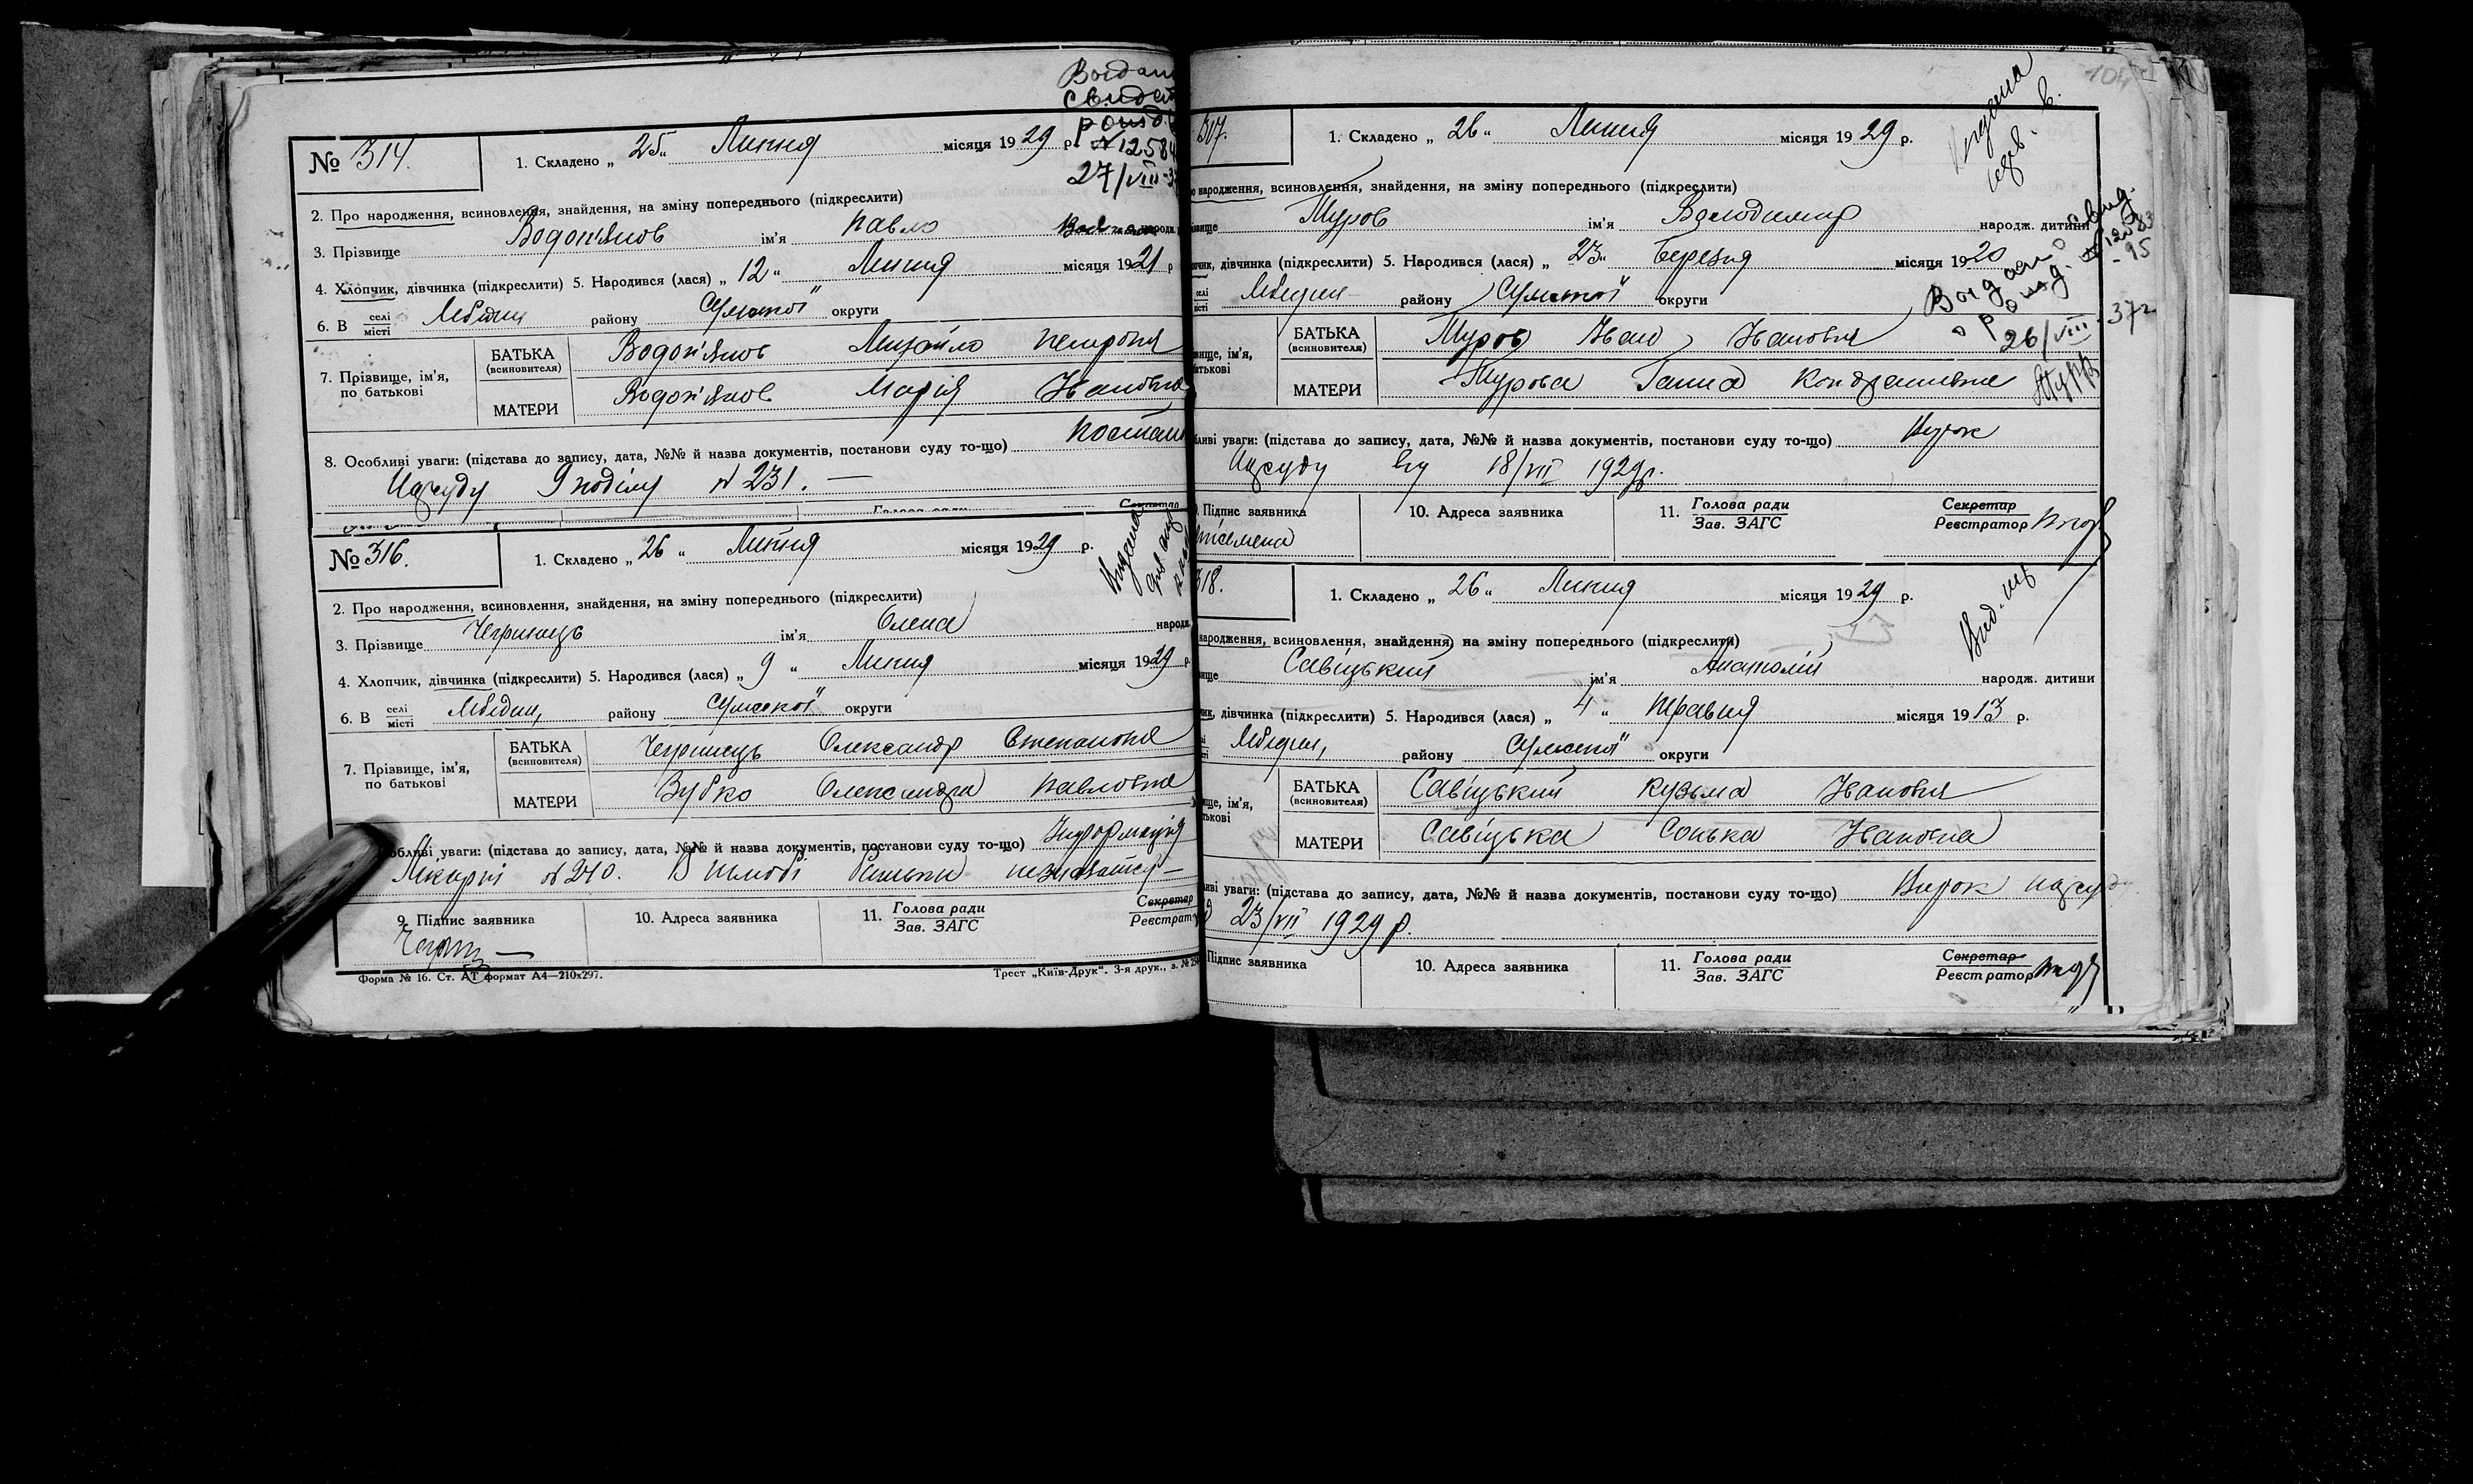 № 314.
1. Складено „ 25 “ Липня місяця 1929 р.
2. Про народження, всиновлення, знайдення, на зміну попереднього (підкреслити)
3. Прізвище Водоп'янов ім'я Павло
4. Хлопчик, дівчинка (підкреслити) 5. Народився (лася) „ 12 “ Липня місяця 1921 р
6. В селі місті Лебедин району Сумської округи
7. Прізвище, ім'я, по батькові
БАТЬКА (всиновителя) Водоп'янов Михайло Петрович
МАТЕРИ Водоп'янов Марія Івановна
8. Особливі уваги: (підстава до запису, дата, №№ й назва документів, постанови суду то-що)
Нарсуду 9 поділу № 231. —
27/VIII-3
№ 316.
1. Складено „ 26 “ Липня місяця 1929 р.
2. Про народження, всиновлення, знайдення, на зміну попереднього (підкреслити)
3. Прізвище ім'я Олена народж.
4. Хлопчик, дівчинка (підкреслити) 5. Народився (лася) „ 9 “ Липня місяця 1929 р.
6. В селі місті Лебедин, району Сумської округи
7. Прізвище, ім'я, по батькові
БАТЬКА (всиновителя) Олександр Степанович
МАТЕРИ Зубко Олександра Павловна
обливі уваги: (підстава до запису, дата, №№ й назва документів, постанови суду то-що) Інформація
Лікарні № 240. В шлюбі батьки
9. Підпис заявника 10. Адреса заявника 11. Голова ради Зав. ЗАГС Секретар Реєстрат
Форма № 16. Ст. АТ формат А4—210х297. Трест „Київ-Друк“. 3-я друк., з. №
317.
1. Складено „ 26 “ Липня місяця 1929 р.
о народження, всиновлення, знайдення, на зміну попереднього (підкреслити)
вище Муров ім'я Володимир народж. дитини
пчик, дівчинка (підкреслити) 5. Народився (лася) „ 23 “ Березня місяця 1920
селі місті Лебедин району Сумської округи
вище, ім'я, батькові
БАТЬКА (всиновителя) Муров Іван Іванович
МАТЕРИ Мурова Ганна Кондратьевна
26/VIII 37г.
бливі уваги: (підстава до запису, дата, №№ й назва документів, постанови суду то-що) Вирок
Нарсуду від 18/VII 1929р.
Підпис заявника 10. Адреса заявника 11. Голова ради Зав. ЗАГС Секретар Реєстратор
318.
1. Складено „ 26 “ Липня місяця 1929 р.
народження, всиновлення, знайдення, на зміну попереднього (підкреслити)
ище Савіцький ім'я Анатолій народж. дитини
чик, дівчинка (підкреслити) 5. Народився (лася) „ 4 “ Травня місяця 1913 р.
Лебедин, району Сумської округи
ище, ім'я, тькові
БАТЬКА (всиновителя) Савіцький Кузьма Іванович
МАТЕРИ Савіцька Сонька Івановна
иві уваги: (підстава до запису, дата, №№ й назва документів, постанови суду то-що) Вирок нарсуду
23/VII 1929 р.
Підпис заявника 10. Адреса заявника 11. Голова ради Зав. ЗАГС Секретар Реєстратор